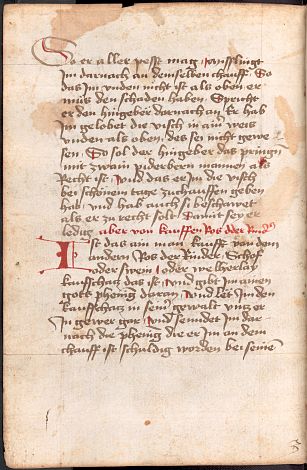 So er aller pest mag vnsslingt
Im darnach an demselben chauff So
das im vnden nicht ist als oben er
mus den schaden haben Spricht
er den hingeber dornach an Er hab
im gelobet die visch in aim weis
vnden als oben des sei nicht gewe
sen So sol der hingeber das prinen
mit zwain piderben mannen als
Recht ist vnd das er Im die visch
bei schönem tage zuchauffen geben
hab vnd hab auch si beschawet
als er zu recht solt Damit sey er
ledig aber von kauffen Ros oder Rinder
Ist das ain man kaufft von dem
andern Ros der Rinder Schof
oder swein oder welherlay
kaufschatz das ist vnd gibt im ainen
gotz phening daran vnd let in den
kaufschatz in sein gewalt vntz er
In gewer gar vnd sendet im dar
nach die phening die er im an dem
chauff ist schuldig worden bei seinem